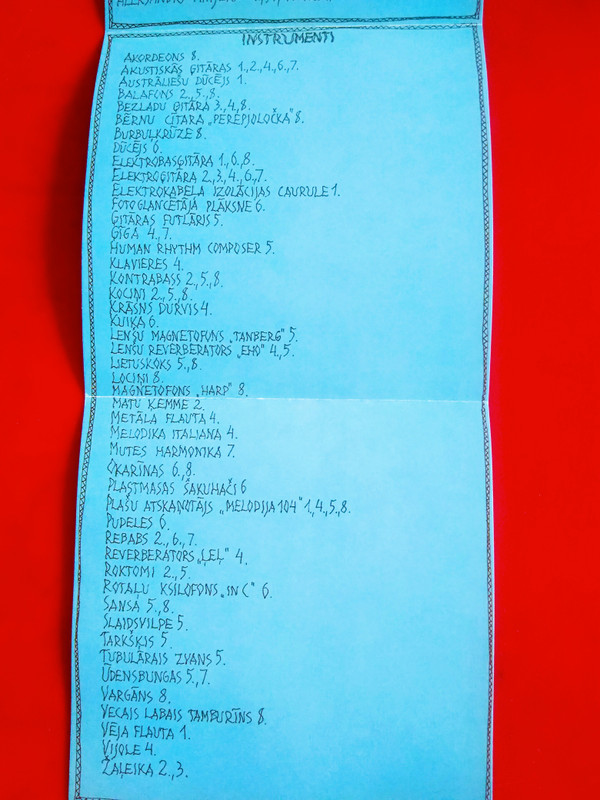 INSTRUMENTI
AKORDEONS 8.
AKUSTISKĀS ĢITĀRAS 1.,2.,4.,6.,7.
AUSTRĀLIEŠU DŪCĒJS 1.
BALAFONS 2.,5.,8.
BEZLADU ĢITĀRA 3.,4.,8.
BĒRNU CĪTARA „PEREPJOLOČKA" 8.
BURBUĻKRŪZE 8.
DŪCĒJS 6.
ELEKTROBASĢITĀRA 1.,6.,8.
ELEKTROĢITĀRA 2.,3.,4.,6.,7.
ELEKTROKABEĻA IZOLĀCIJAS CAURULE 1.
FOTOGLANCĒTĀJA PLĀKSNE 6.
ĢITĀRAS FUTLĀRIS 5.
ĢĪGA 4.,7.
HUMAN RHYTHM COMPOSER 5.
KLAVIERES 4.
KONTRABASS 2.,5.,8.
KOCIŅI 2.,5.,8.
KRĀSNS DURVIS 4.
KUIKA 6.
LENŠU MAGNETOFONS „TANBERG" 5.
LENŠU REVERBERATORS „EHO" 4.,5.
LIETUSKOKS 5.,8.
LOCIŅI 8.
MAGNETOFONS „HARP" 8.
MATU ĶEMME 2.
METĀLA FLAUTA 4.
MELODIKA ITALIANA 4.
MUTES HARMONIKA 7.
OKARĪNAS 6.,8.
PLASTMASAS ŠAKUHAČI 6
PLAŠU ATSKAŅOTĀJS „MELODIJA 104" 1.,4.,5.,8.
PUDELES 6.
REBABS 2.,6.,7.
REVERBERATORS „ĻEĻ" 4.
ROKTOMI 2.,5.
ROTAĻU KSILOFONS „IN C" 6.
SANSA 5.,8.
SLAIDSVILPE 5.
TARKŠĶIS 5.
TUBULĀRAIS ZVANS 5.
ŪDENSBUNGAS 5.,7.
VARGĀNS 8.
VECAIS LABAIS TAMBURĪNS 8.
VĒJA FLAUTA 1.
VIJOLE 4.
ŽAĻEIKA 2.,3.